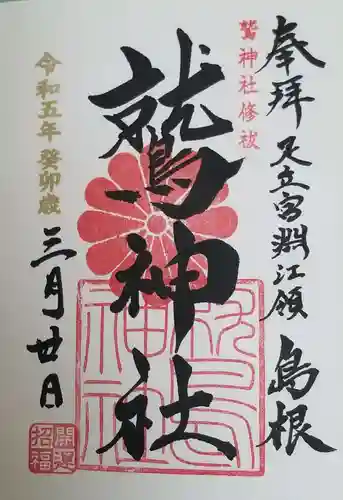 奉拝 足立宮淵江領 島根
鷲神社修祓
鷲神社
令和五年癸卯歳
三月廿日
開運
招福